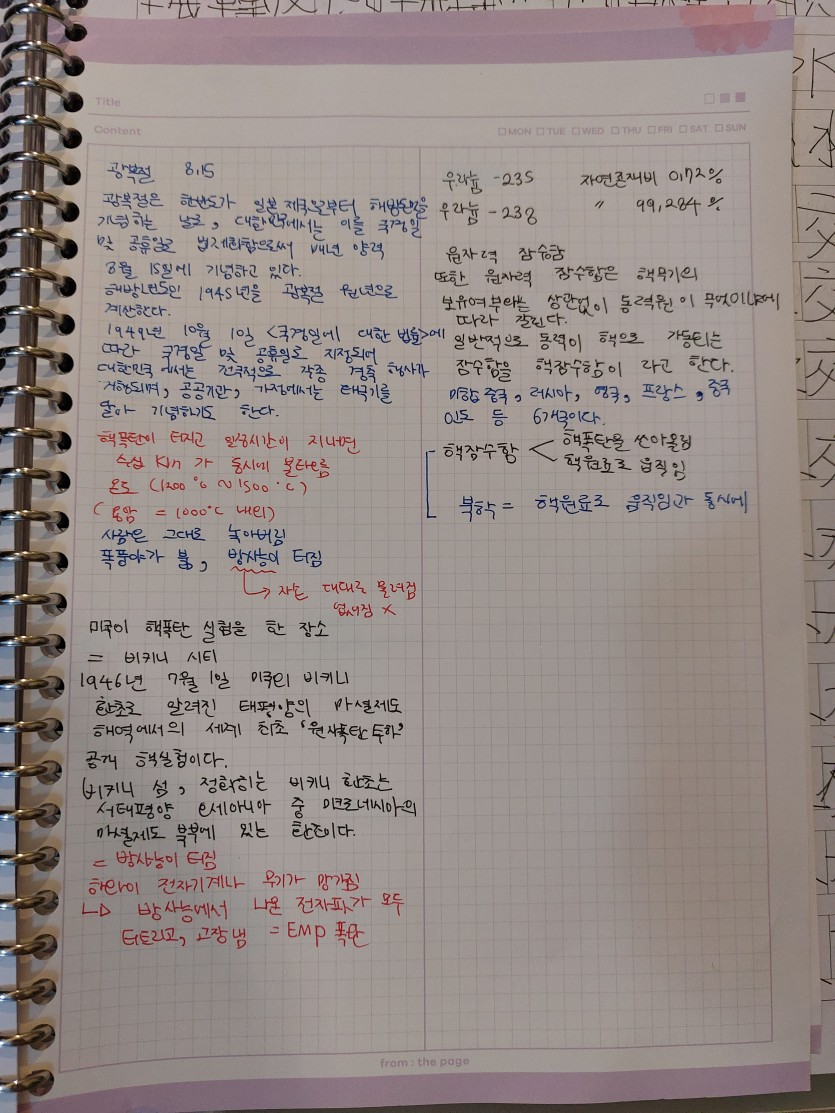 Title
Content
MON TUE WED THU FRI SAT SUN
광복절 8.15
광복절은 한반도가 일본 제국으로부터 해방된것을
기념하는 날로, 대한민국에서는 이를 국경일
및 공휴일로 법제화함으로써 매년 양력
8월 15일에 기념하고 있다.
해방년도인 1945년을 광복절 원년으로
계산한다.
1949년 10월 1일 <국경일에 대한 법률>에
따라 국경일 및 공휴일로 지정되어
대한민국에서는 전국적으로 각종 경축 행사가
거행되며, 공공기관, 가정에서는 태극기를
달아 기념하기도 한다.
핵폭탄이 터지고 일정시간이 지나면
수십 Km가 동시에 불타오름
온도 (1200°C ~ 1500°C)
(용암 = 1000°C 내외)
사람은 그대로 녹아버림
폭풍이 붊, 방사능이 터짐
자손 대대로 물려짐
없어짐 X
미국이 핵폭탄 실험을 한 장소
= 비키니 시티
1946년 7월 1일 미국의 비키니
환초로 알려진 태평양의 마셜제도
해역에서의 세계 최초 '원자폭탄 투하'
공개 핵실험이다.
비키니 섬, 정확히는 비키니 환초는
서태평양 오세아니아 중 미크로네시아의
마셜제도 북부에 있는 환초이다.
= 방사능이 터짐
하와이 전자기계나 무기가 망가짐
↳ 방사능에서 나온 전자파가 모두
터트리고, 고장냄 = EMP 폭탄
우라늄 -235 자연존재비 0.72%
우라늄 -238 〃 99.284%
원자력 잠수함
또한 원자력 잠수함은 핵무기의
보유여부와는 상관없이 동력원이 무엇이냐에
따라 갈린다.
일반적으로 동력이 핵으로 가동되는
잠수함을 핵잠수함이라고 한다.
미합중국, 러시아, 영국, 프랑스, 중국
인도 등 6개국이다.
핵잠수함 < 핵폭탄을 쏘아올림
핵원료로 움직임
북한 = 핵원료로 움직임과 동시에
from : the page